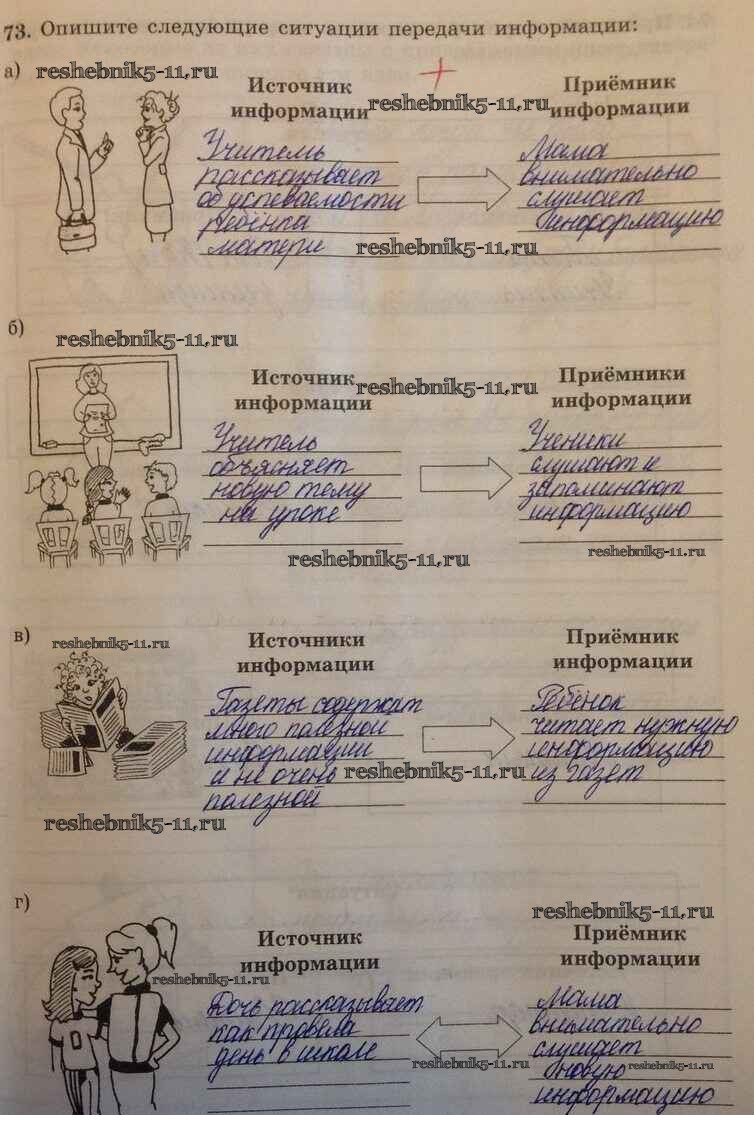 73. Опишите следующие ситуации передачи информации:
а)
reshebnik5-11.ru
Источник информации
reshebnik5-11.ru
Приёмник информации
Учитель
рассказывает
об успеваемости
ребёнка
матери
Мама
внимательно
слушает
информацию
reshebnik5-11.ru
б)
reshebnik5-11.ru
Источник
информации
reshebnik5-11.ru
Приёмники
информации
Учитель
объясняет
новую тему
на уроке
Ученики
слушают и
запоминают
информацию
reshebnik5-11.ru
reshebnik5-11.ru
в)
reshebnik5-11.ru
Источники
информации
Приёмник
информации
Газеты содержат
много полезной
информации
и не очень
полезной
Ребёнок
читает нужную
информацию
из газет
reshebnik5-11.ru
reshebnik5-11.ru
г)
reshebnik5-11.ru
Источник
информации
Приёмник
информации
reshebnik5-11.ru
Дочь рассказывает
как провела
день в школе
Мама
внимательно
слушает
новую
информацию
reshebnik5-11.ru
reshebnik5-11.ru